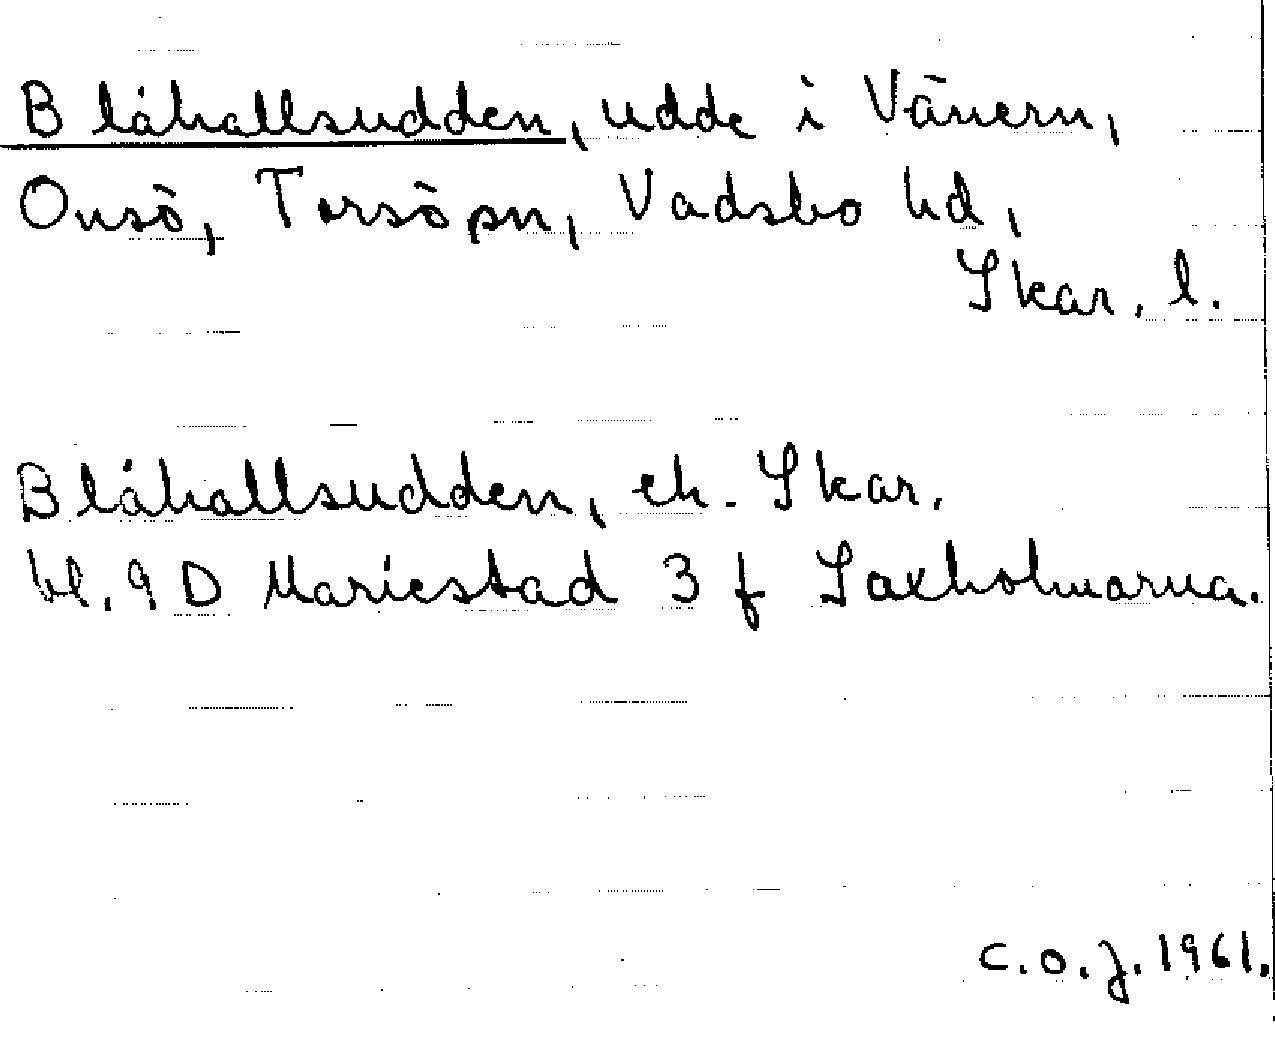 Blåhallsudden, udde i Vänern,
Onsö, Torsö sn, Vadsbo hd,
Skar. l.
Blåhallsudden, ek. Skar.
bl. 9 D Mariestad 3 f Laxholmarna.
C.O.J. 1961.